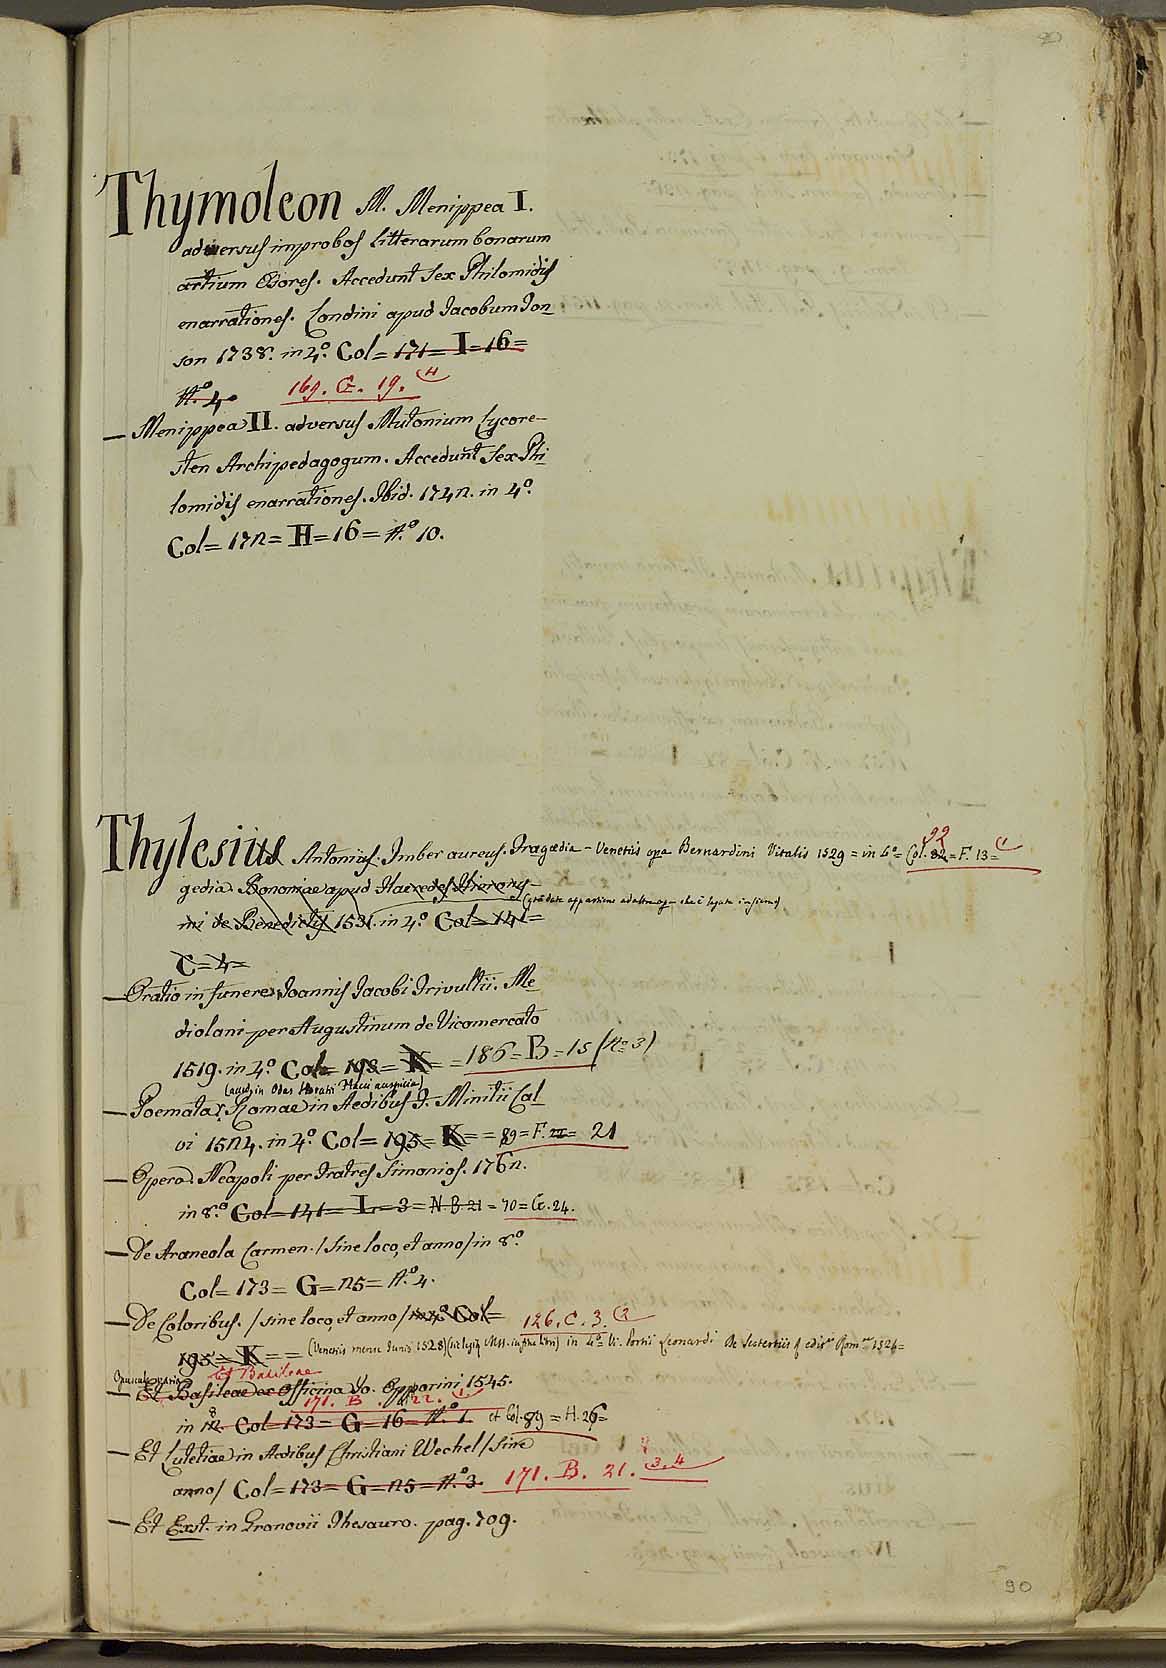 90
Thymoleon M. Menippea I.
adversus improbos litterarum bonarum
artium Osores. Accedunt sex Philomidis
enarrationes. Londini apud Jacobum Ton
son 1738. in 4.º Col= 171= I=16=
N.º 4. 169. G. 19. (4
— Menippea II. adversus Mutonium Lycore-
sten Archipedagogum. Accedunt sex Phi
lomidis enarrationes. Ibid. 1742. in 4.º
Col= 172= H=16= N.º 10.
Thylesius Antonius. Imber aureus. Tragædia - Venetiis opa Bernardini Vitalis 1529 = in 4º= Col. 82= F. 13= (1
99
gedia. Bononiae apud Haeredes Hierony-
mi de Benedictis 1531. in 4.º Col= 141=
C=4=
— Oratio in funere Joannis Jacobi Trivultii. Me
diolani per Augustinum de Vicomercato
1519. in 4.º Col= 198= K= =186=B=15 (Nº 3)
— Poemata. Romae in Aedibus F. Minitii Cal
vi 1524. in 4.º Col= 195= K= =89=F. II= 21
— Opera. Neapoli per Fratres Simonios. 1762.
in 8.º Col= 141= L=3= N B 21 = 70=G. 24.
— De Araneola Carmen. /sine loco, et anno/ in 8.º
Col= 173= G=25= N.º 4.
— De Coloribus. /sine loco, et anno/ in 4.º Col= 126. C. 3. (2
195= K= = (Venetiis mense Junii 1528)
Et Basileae
— Et Basileae ex Officina Jo. Opporini 1545.
171. B. 22. (1
in 12. 8 Col= 173= G=16= N.º 1. et Col. 89 = H. 26=
— Et Lutetiae in Aedibus Christiani Wechel /sine
anno/ Col= 173= G=25= N.º 3. 171. B. 21. (3. 4
— Et Exst. in Gronovii Thesauro. pag. 709.
90